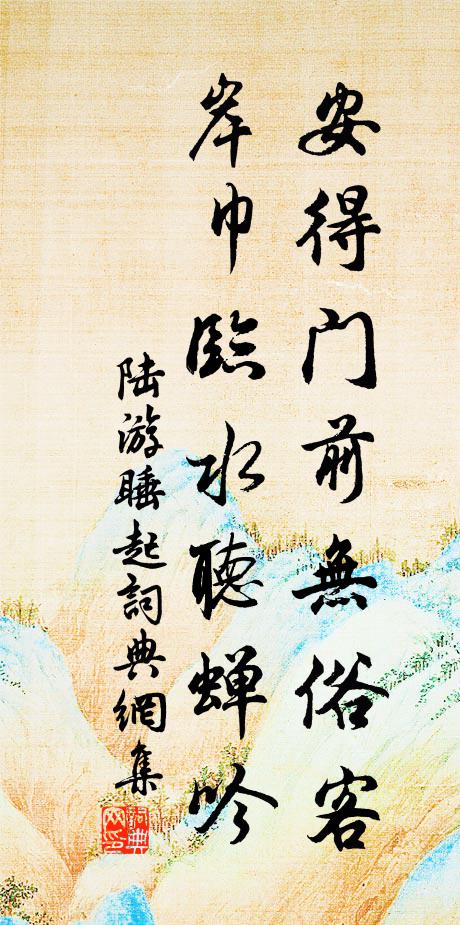 安得门前無俗客
岸巾臨水聽蝉吟
陆游睡起詞典網集
詞典網印